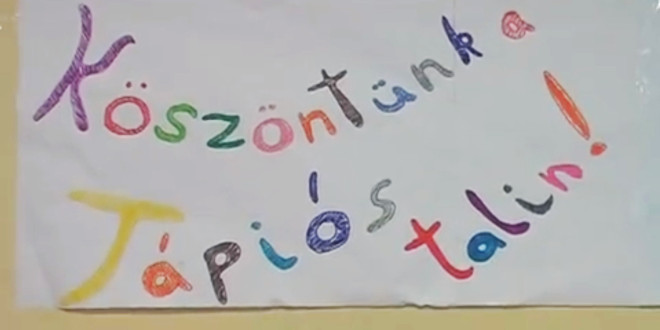 Köszöntünk a
Tápiós talin!